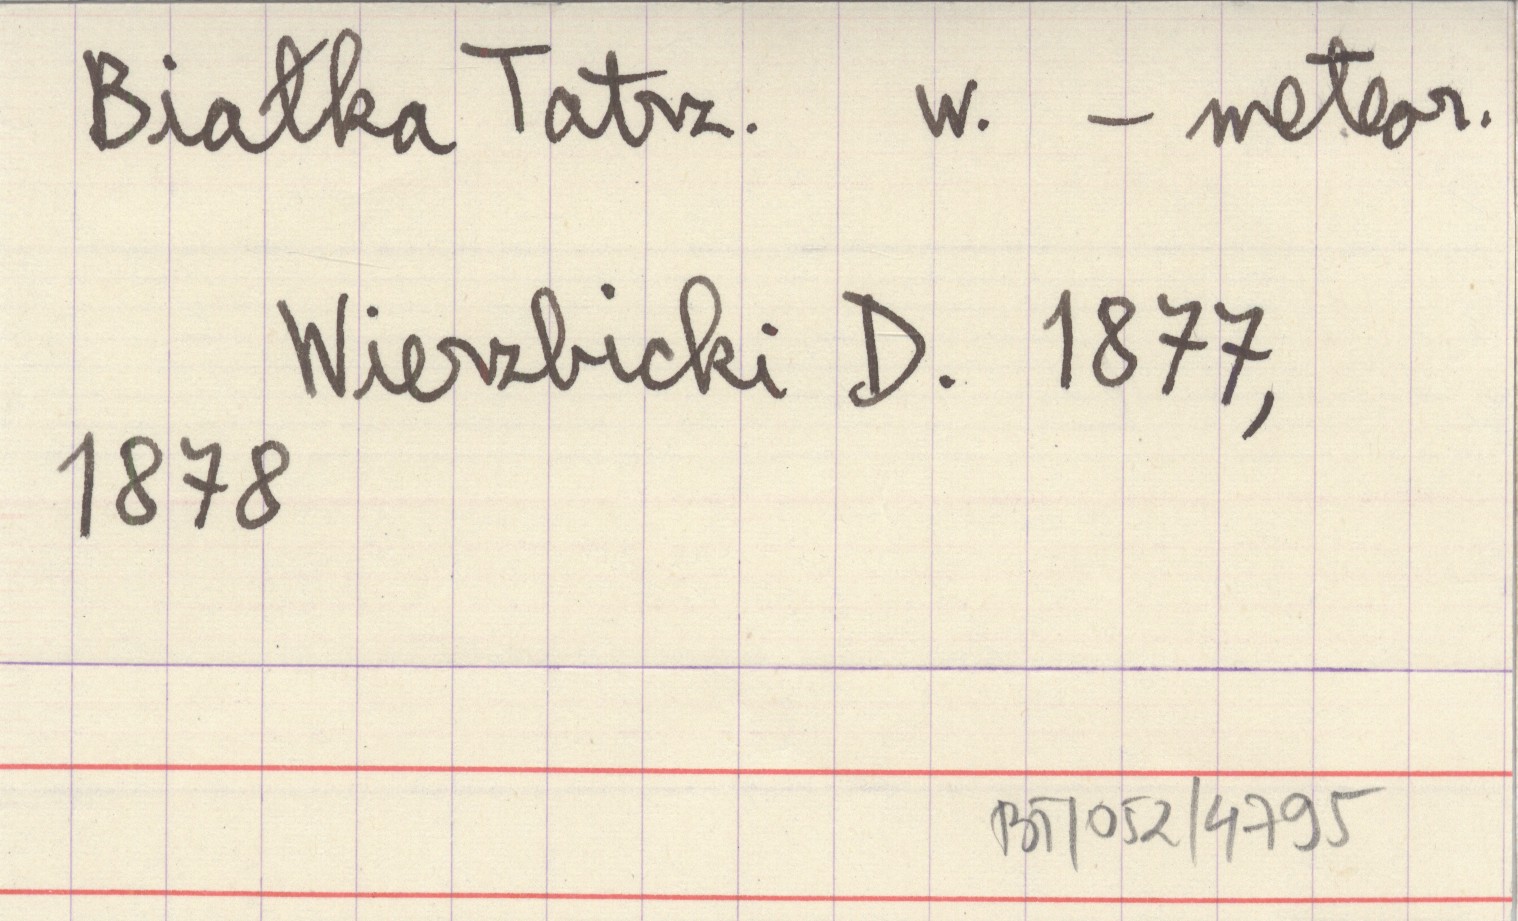 Białka Tatrz. w. - meteor.
Wierzbicki D. 1877,
1878
BT/052/4795